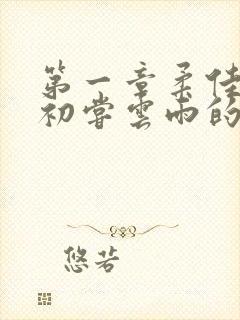 第一章柔佳
初尝云雨的
悠若